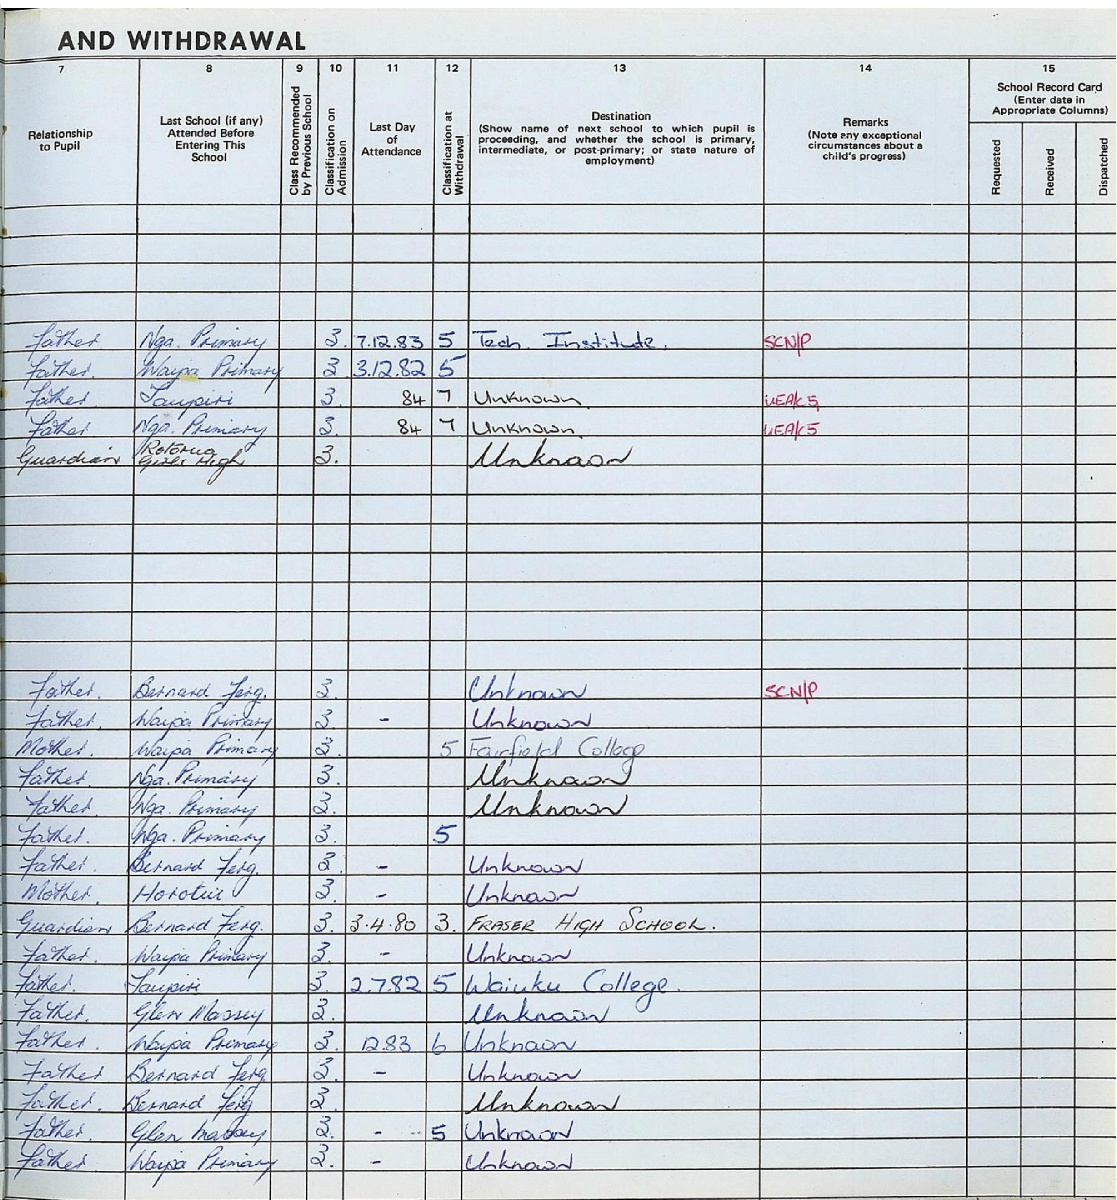 AND WITHDRAWAL
7 8 9 10 11 12 13 14 15
Relationship to Pupil
Last School (if any) Attended Before Entering This School
Class Recommended by Previous School
Classification on Admission
Last Day of Attendance
Classification at Withdrawal
Destination
(Show name of next school to which pupil is proceeding, and whether the school is primary, intermediate, or post-primary; or state nature of employment)
Remarks
(Note any exceptional circumstances about a child's progress)
School Record Card
(Enter date in Appropriate Columns)
Requested Received Dispatched
Father. Nga. Primary 3. 7.12.83 5 Tech. Institute. SCN/P
Father. Waipa Primary 3 3.12.82 5
Father Taupiri 3. 84 7 Unknown
Father. Nga. Primary 3. 84 7 Unknown.
Guardian Rotorua Girls High 3. Unknown
Father. Bernard Ferg. 3. Unknown SCN/P
Father. Waipa Primary 3. - Unknown
Mother. Waipa Primary 3. 5 Fairfield College
Father. Nga. Primary 3. Unknown
Father. Nga. Primary 3. Unknown
Father. Nga. Primary 3. 5
Father. Bernard Ferg. 3. - Unknown
Mother. Horotiu 3. - Unknown
Guardian Bernard Ferg. 3. 3.4.80 3. FRASER HIGH SCHOOL.
Father. Waipa Primary 3. - Unknown
Father. Taupiri 3. 2.7.82 5 Waiuku College.
Father. Glen Massey 3. Unknown
Father. Waipa Primary 3. 12.83 6 Unknown
Father Bernard Ferg 3. - Unknown
Father. Bernard Ferg 3. Unknown
Father. Glen Massey 3. - 5 Unknown
Father Waipa Primary 3. - Unknown